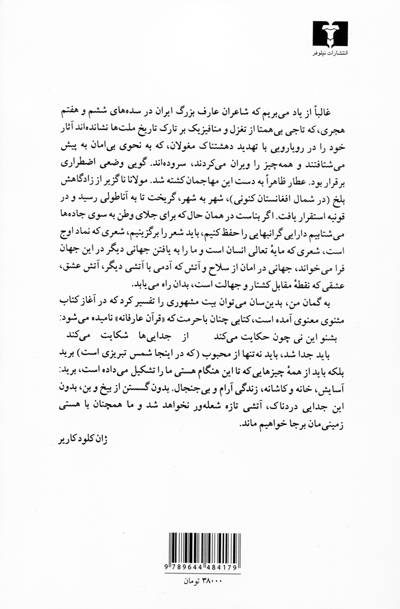 انتشارات نیلوفر
غالباً از یاد می‌بریم که شاعران عارف بزرگ ایران در سده‌های ششم و هفتم
هجری، که تاجی بی‌همتا از تغزل و متافیزیک بر تارک تاریخ ملت‌ها نشانده‌اند آثار
خود را در رویارویی با تهدید دهشتناک مغولان، که به نحوی بی‌امان به پیش
می‌شتافتند و همه‌چیز را ویران می‌کردند، سروده‌اند. گویی وضعی اضطراری
برقرار بود. عطار ظاهراً به دست این مهاجمان کشته شد. مولانا ناگزیر از زادگاهش
بلخ (در شمال افغانستان کنونی)، شهر به شهر، گریخت تا به آناطولی رسید و در
قونیه استقرار یافت. اگر بناست در همان حال که برای جلای وطن به سوی جاده‌ها
می‌شتابیم دارایی گرانبهایی را حفظ کنیم، باید شعر را برگزینیم، شعری که نماد اوج
است، شعری که مایهٔ تعالی انسان است و ما را به یافتن جهانی دیگر در این جهان
فرا می‌خواند، جهانی در امان از سلاح و آتش که آدمی با آتشی دیگر، آتش عشق،
عشقی که نقطهٔ مقابل کشتار و جهالت است، بدان راه می‌یابد.
به گمان من، بدین‌سان می‌توان بیت مشهوری را تفسیر کرد که در آغاز کتاب
مثنوی معنوی آمده است، کتابی چنان باحرمت که «قرآن عارفانه» نامیده می‌شود:
بشنو این نی چون حکایت می‌کند از جدایی‌ها شکایت می‌کند
باید جدا شد، باید نه‌تنها از محبوب (که در اینجا شمس تبریزی است) برید
بلکه باید از همهٔ چیزهایی که تا این هنگام هستی ما را تشکیل می‌داده است، برید:
آسایش، خانه و کاشانه، زندگی آرام و بی‌جنجال. بدون گسستن از بیخ و بن، بدون
این جدایی دردناک، آتشی تازه شعله‌ور نخواهد شد و ما همچنان با هستی
زمینی‌مان برجا خواهیم ماند.
ژان کلود کاریر
9 789644 484179
۳۸۰۰۰ تومان